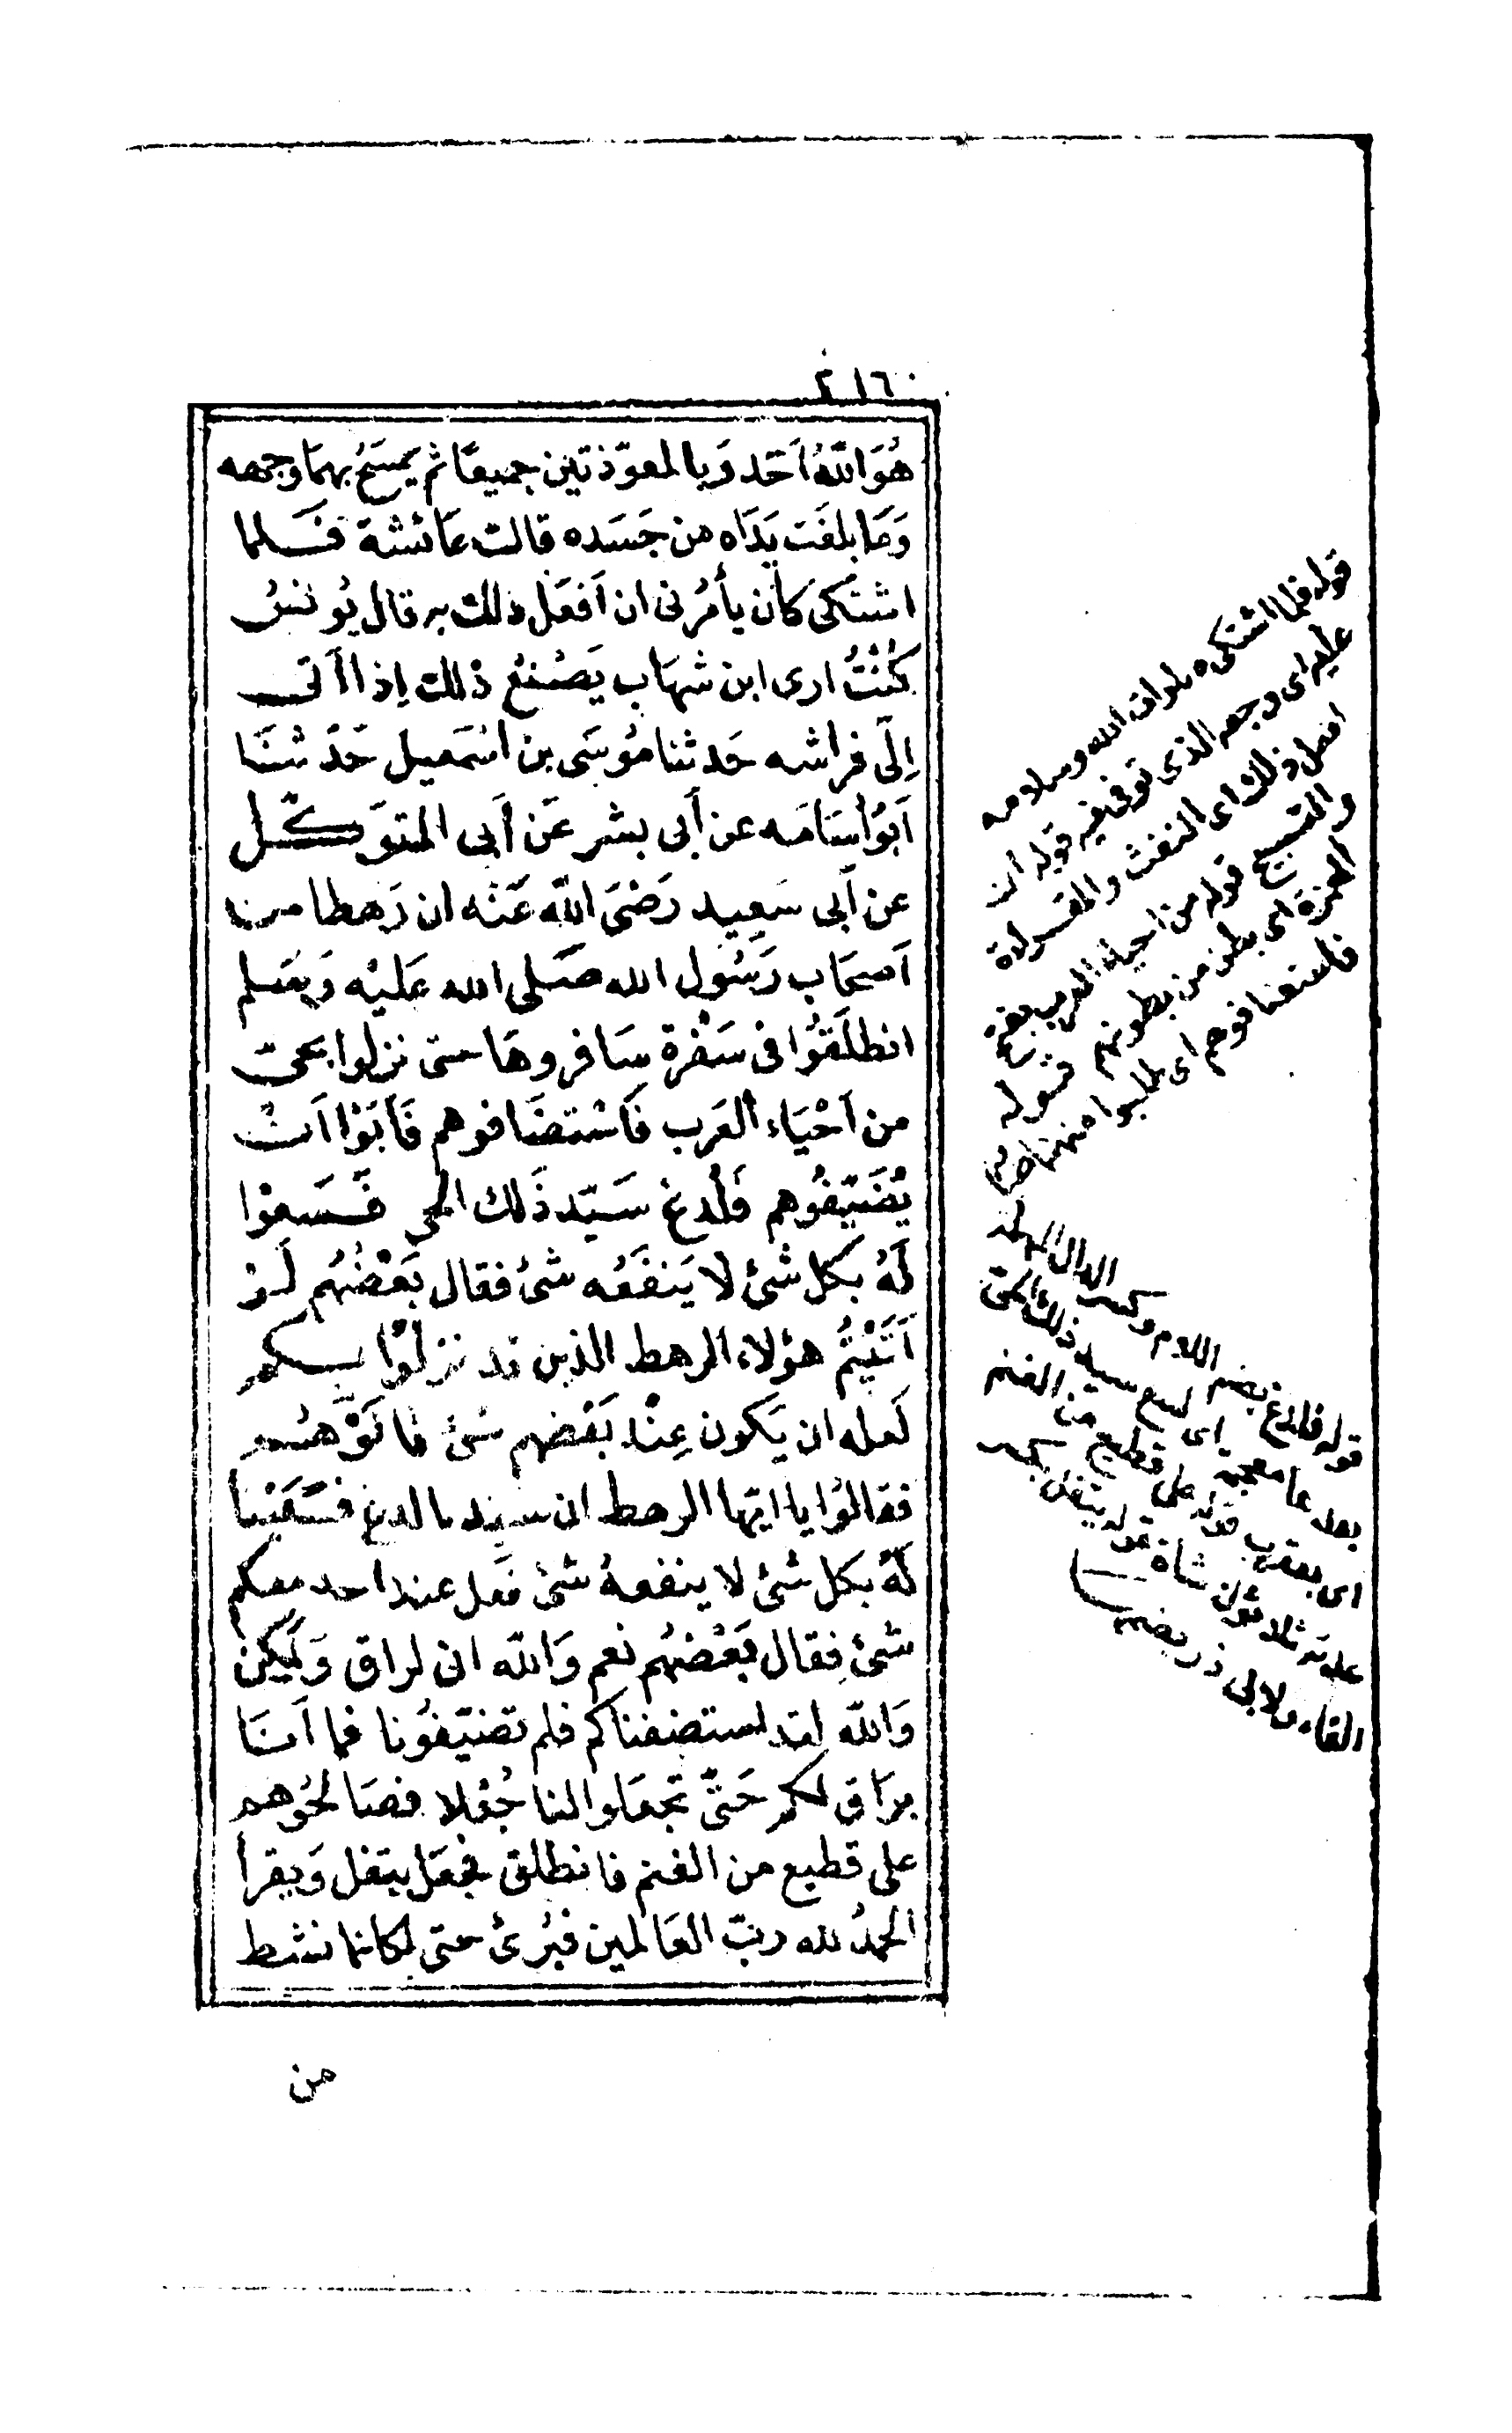 ٢١٦٠
هُوَ اللّٰهُ اَحَد وَبالمعوّذتين جميعًا ثم يمسَحُ بهمَا وجهه
وَمَا بلغَت يَدَاه من جَسَده قالت عَائشة فَلما
اشتكىَ كان يأمرُنى ان اَفعَل ذلك به قال يُونسُ
كُنْتُ ارى ابن شهَاب يَصْنَعُ ذلك إذا اَتى
اِلىَ فراشه حَدثنا مُوسَى بن اسْمَعيل حَدّثنَا
اَبوُاسَامَه عن أبى بشر عَن أبى المتوَكّل
عن اَبى سَعِيد رَضىَ اللّه عَنْه ان رَهطا من
اَصحَاب رَسُول الله صَلى الله عَليْه وَسَلم
انطلَقوُا فى سَفْرة سَافروهَا حتى نزلوا بحىّ
من اَحْيَاء العَرب فَاسْتضَافوهم فَأبَوْا اَن
يُضَيّفُوهم فلُدغ سَيّد ذَلك الحى فَسَعوْا
لَهُ بكل شئ لا يَنفَعُه شئ فقال بَعْضُهُم لَو
اَتَيْتُمُ هؤلاء الرهط الذين قد نزلُوْا بكم
لَعله ان يَكون عِنْد بَعْضهم شئ فاتَوْهُم
فقالوُا يا ايّها الرهط ان سيدنا لدغ فسَعَيْنا
لَهُ بكل شئ لا ينفعهُ شئ فَهل عند احد منكم
شئ فقال بَعْضهُم نعم وَاللّه انى لراق وَلَكِن
وَاللّه لقد استضفناكم فلم تضيّفُونا فما اَنَا
برَاق لكم حَتّى تجعَلوا لنا جُعْلا فصَالحُوهم
على قطيع من الغنم فانطلق فجعَل يتفل وَيقرأ
الحمدُ لله ربّ العَالمين فبُرئ حتى لكانما نشط
من
قوله فلما اشتكى صلوات الله وسلامه
عليه اى وجعه الذى توفى فيه قوله ان
افعل ذلك اى النفث والقراءة
والمسح قوله من احياء العرب بفتح
الهمزة اى بطن من بطونهم قوله
فاستضافوهم اى طلبوا منهم
قوله فلدغ بضم اللام وكسر الدال المهملة
بعدها معجمة اى لسع سيد ذلك الحى
اى بعقرب قوله على قطيع من الغنم
ثلاثون شاة قوله يتفل بكسر
الفاء ولابى ذر بضمها